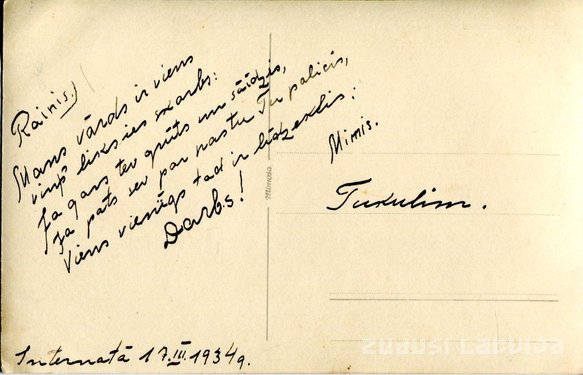 Rainis.
Mans vārds ir viens
viņš liksies skarbs:
Ja gars tev grūts un sādzes,
Ja pats sev par nastu Tu palicis,
Viens vienīgs tad ir līdzeklis:
Darbs!
Mimis.
Tukulim.
Mimosa
Internatā 17.III.1934g.
zudusi Latvija